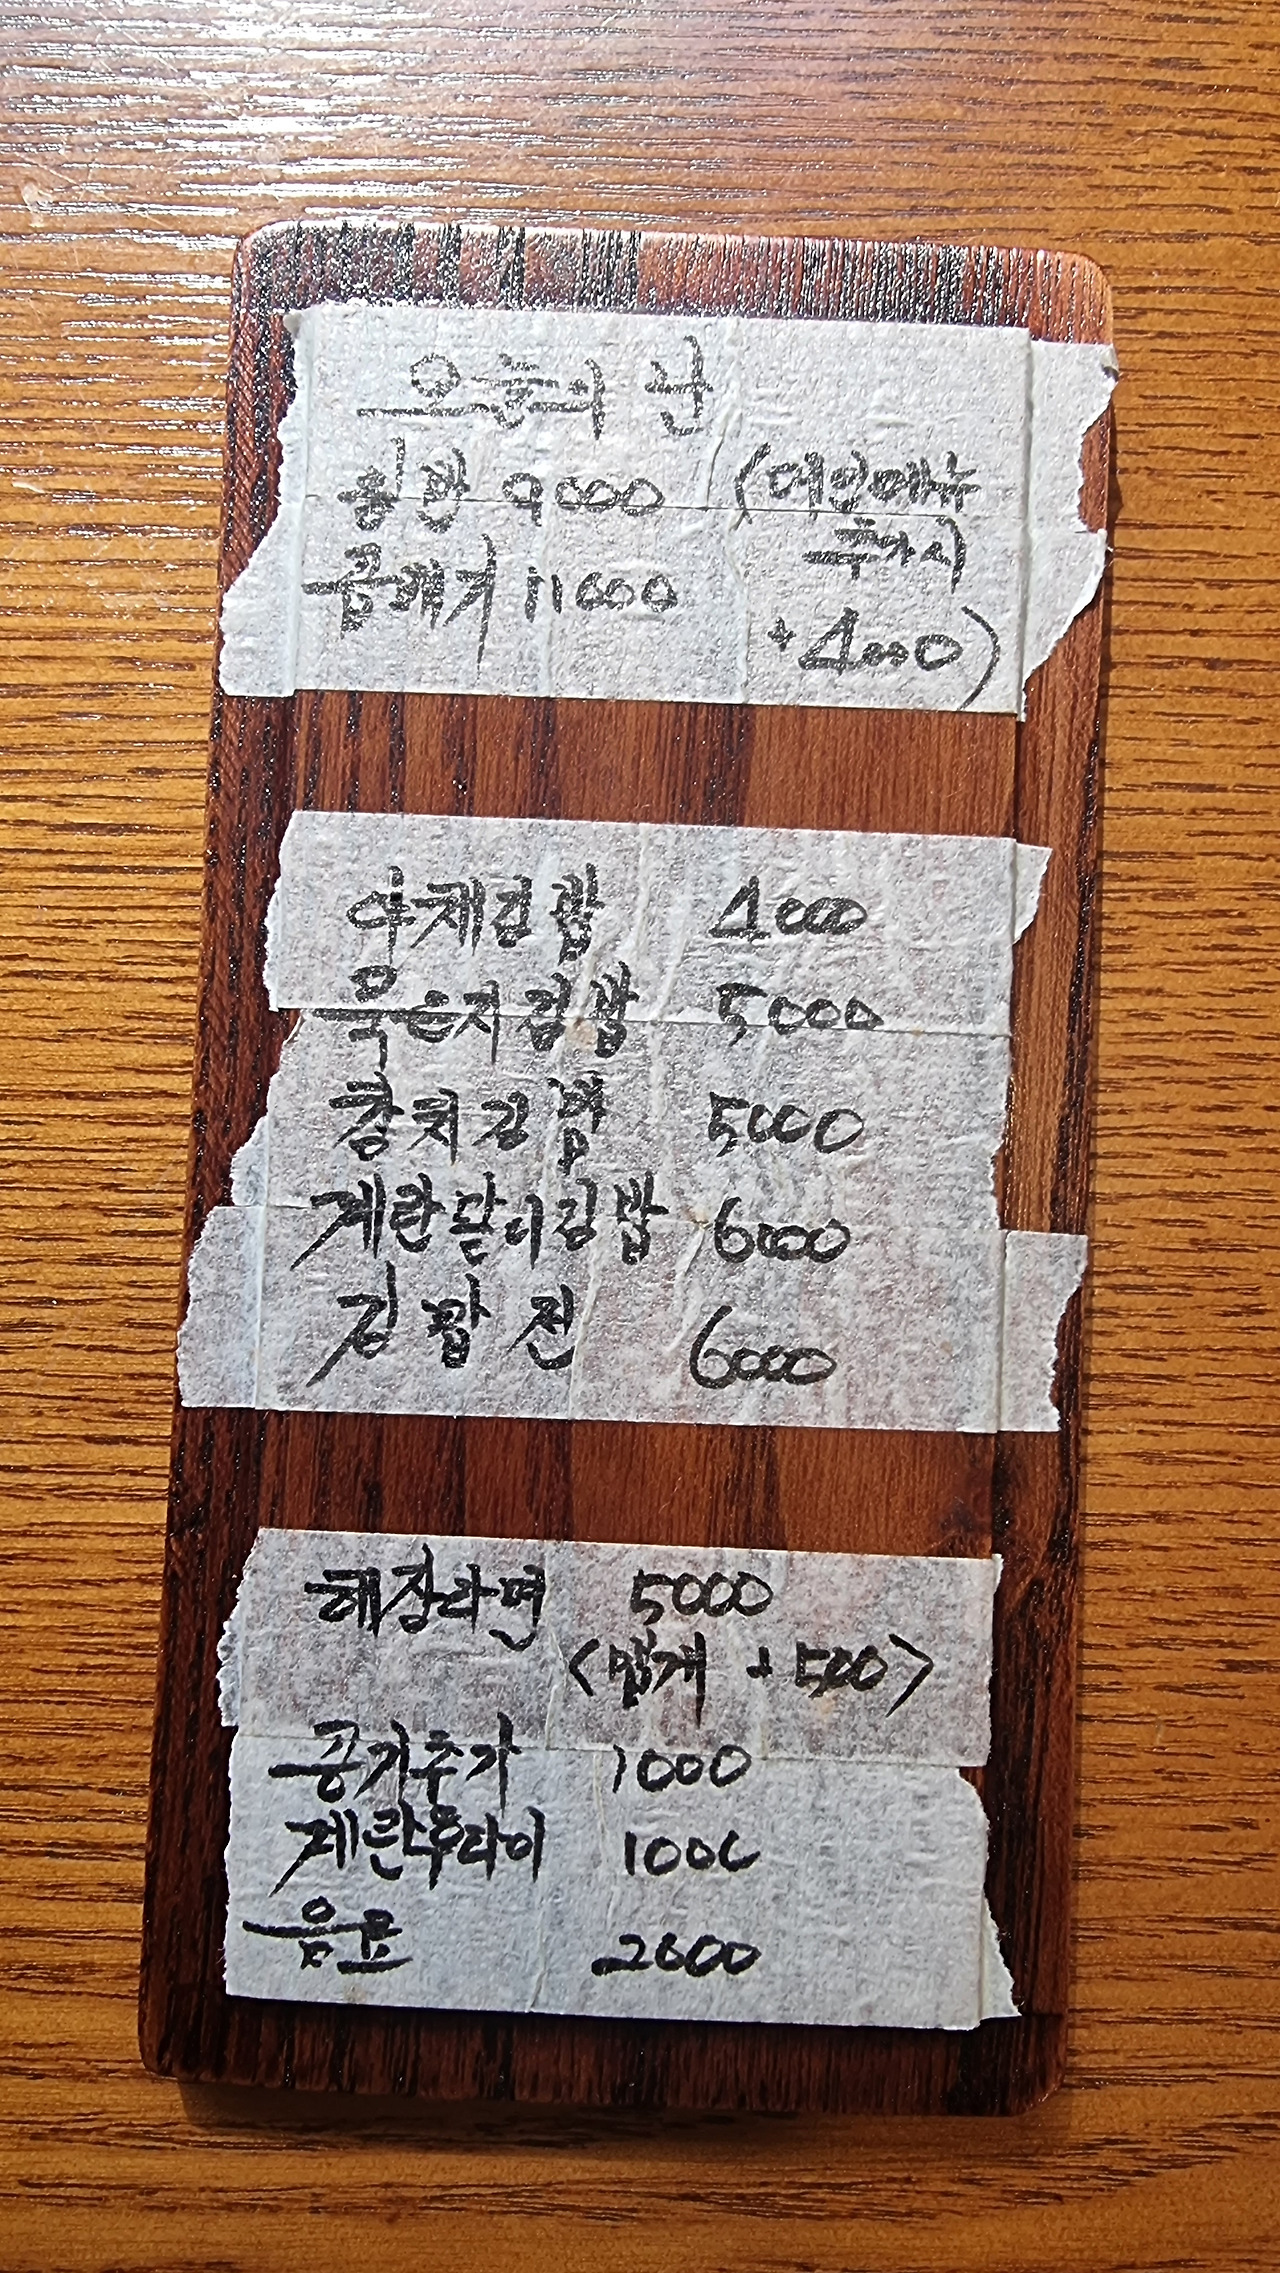 오늘의 찬
집밥 9000
곱배기 11000
(메인메뉴
추가시
+4000)
야채김밥 4000
묵은지김밥 5000
참치김밥 5000
계란말이김밥 6000
김밥전 6000
해장라면 5000
<맵게 +500>
공기추가 1000
계란후라이 1000
음료 2000